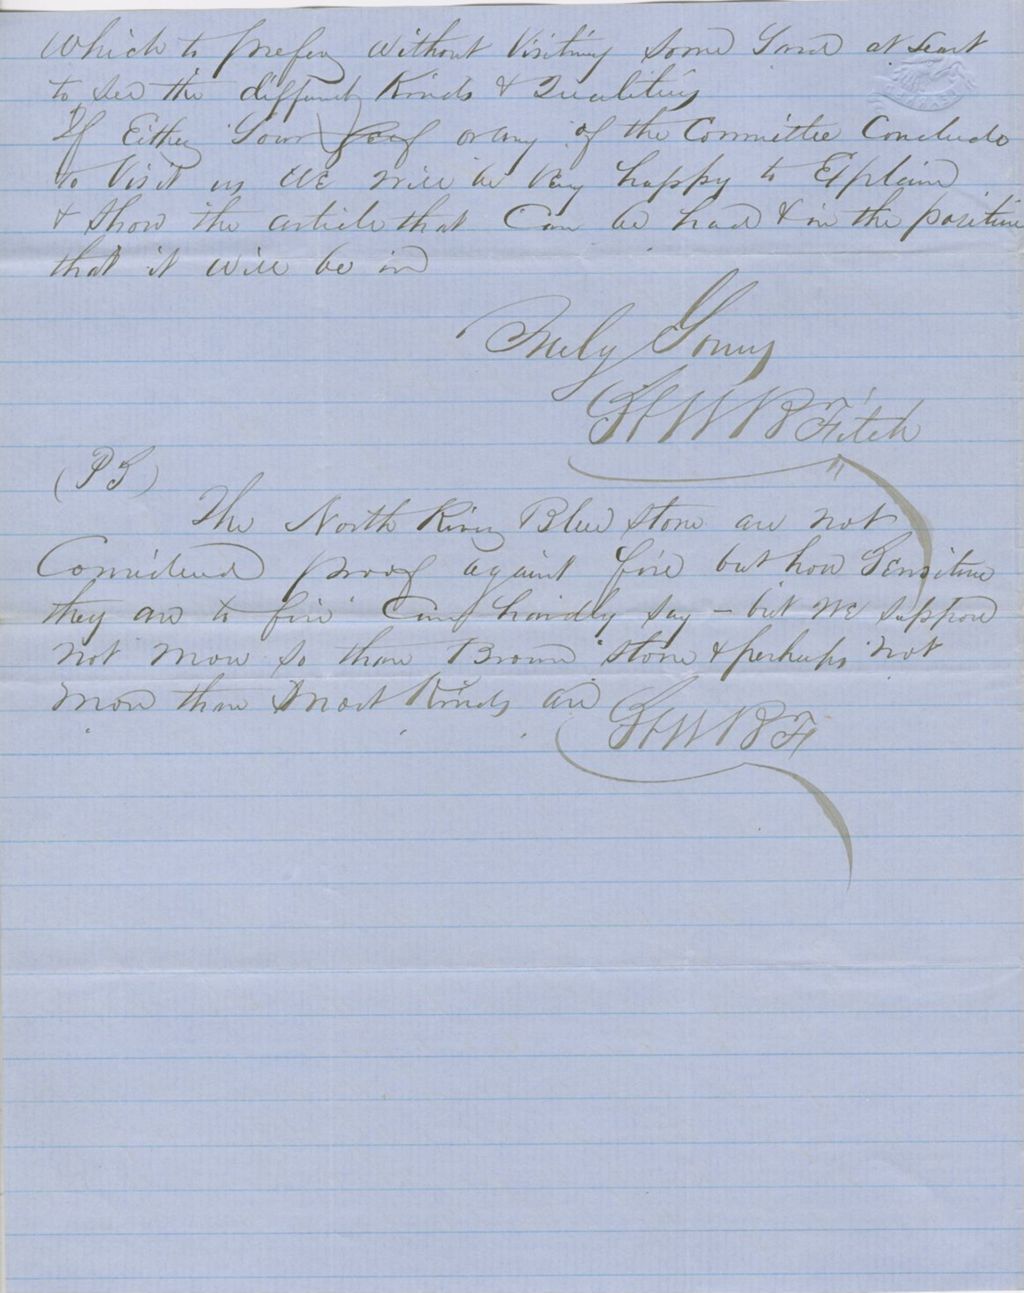 Which to prefer without Visiting some Yard at least
to see the different Kinds & Qualities
If Either Your Self or any of the Committee Conclude
to Visit us We will be Very happy to Explain
& Show the article that Can be had & in the position
that it will be in
Truly Yours
W B Fitch
(P S)
The North River Blue Stone are not
Considered proof against fire but how Sensitive
they are to fire Can hardly say - but we suppose
not more so than Brown Stone & perhaps not
more than Most Kinds are
W B F